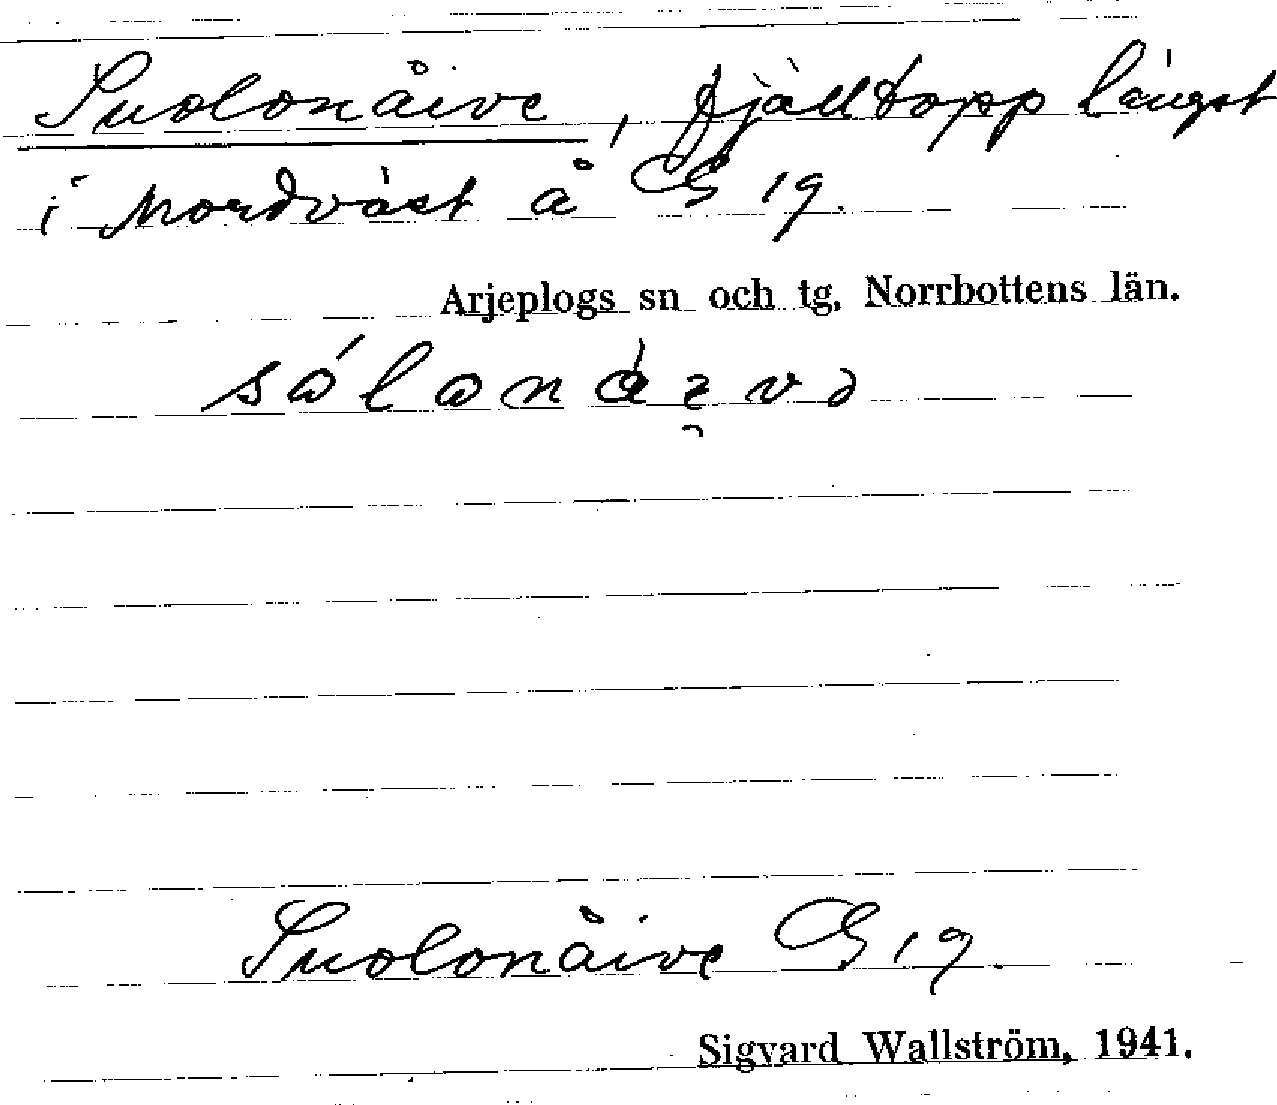 Suolonåive, fjälltopp längst
i nordväst å G 19.
Arjeplogs sn och tg. Norrbottens län.
Suolonåive G 19.
Sigvard Wallström, 1941.